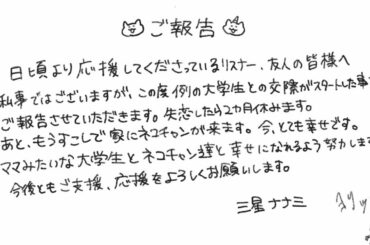 ご報告
日頃より応援してくださっているリスナー、友人の皆様へ
私事ではございますが、この度例の大学生との交際がスタートした事
ご報告させていただきます。失恋したら2ヵ月休みます。
あと、もうすこしで家にネコチャンが来ます。今、とても幸せです。
ママみたいな大学生とネコチャン達と幸せになれるよう努力します
今後ともご支援、応援をよろしくお願いします。
三星ナナミ